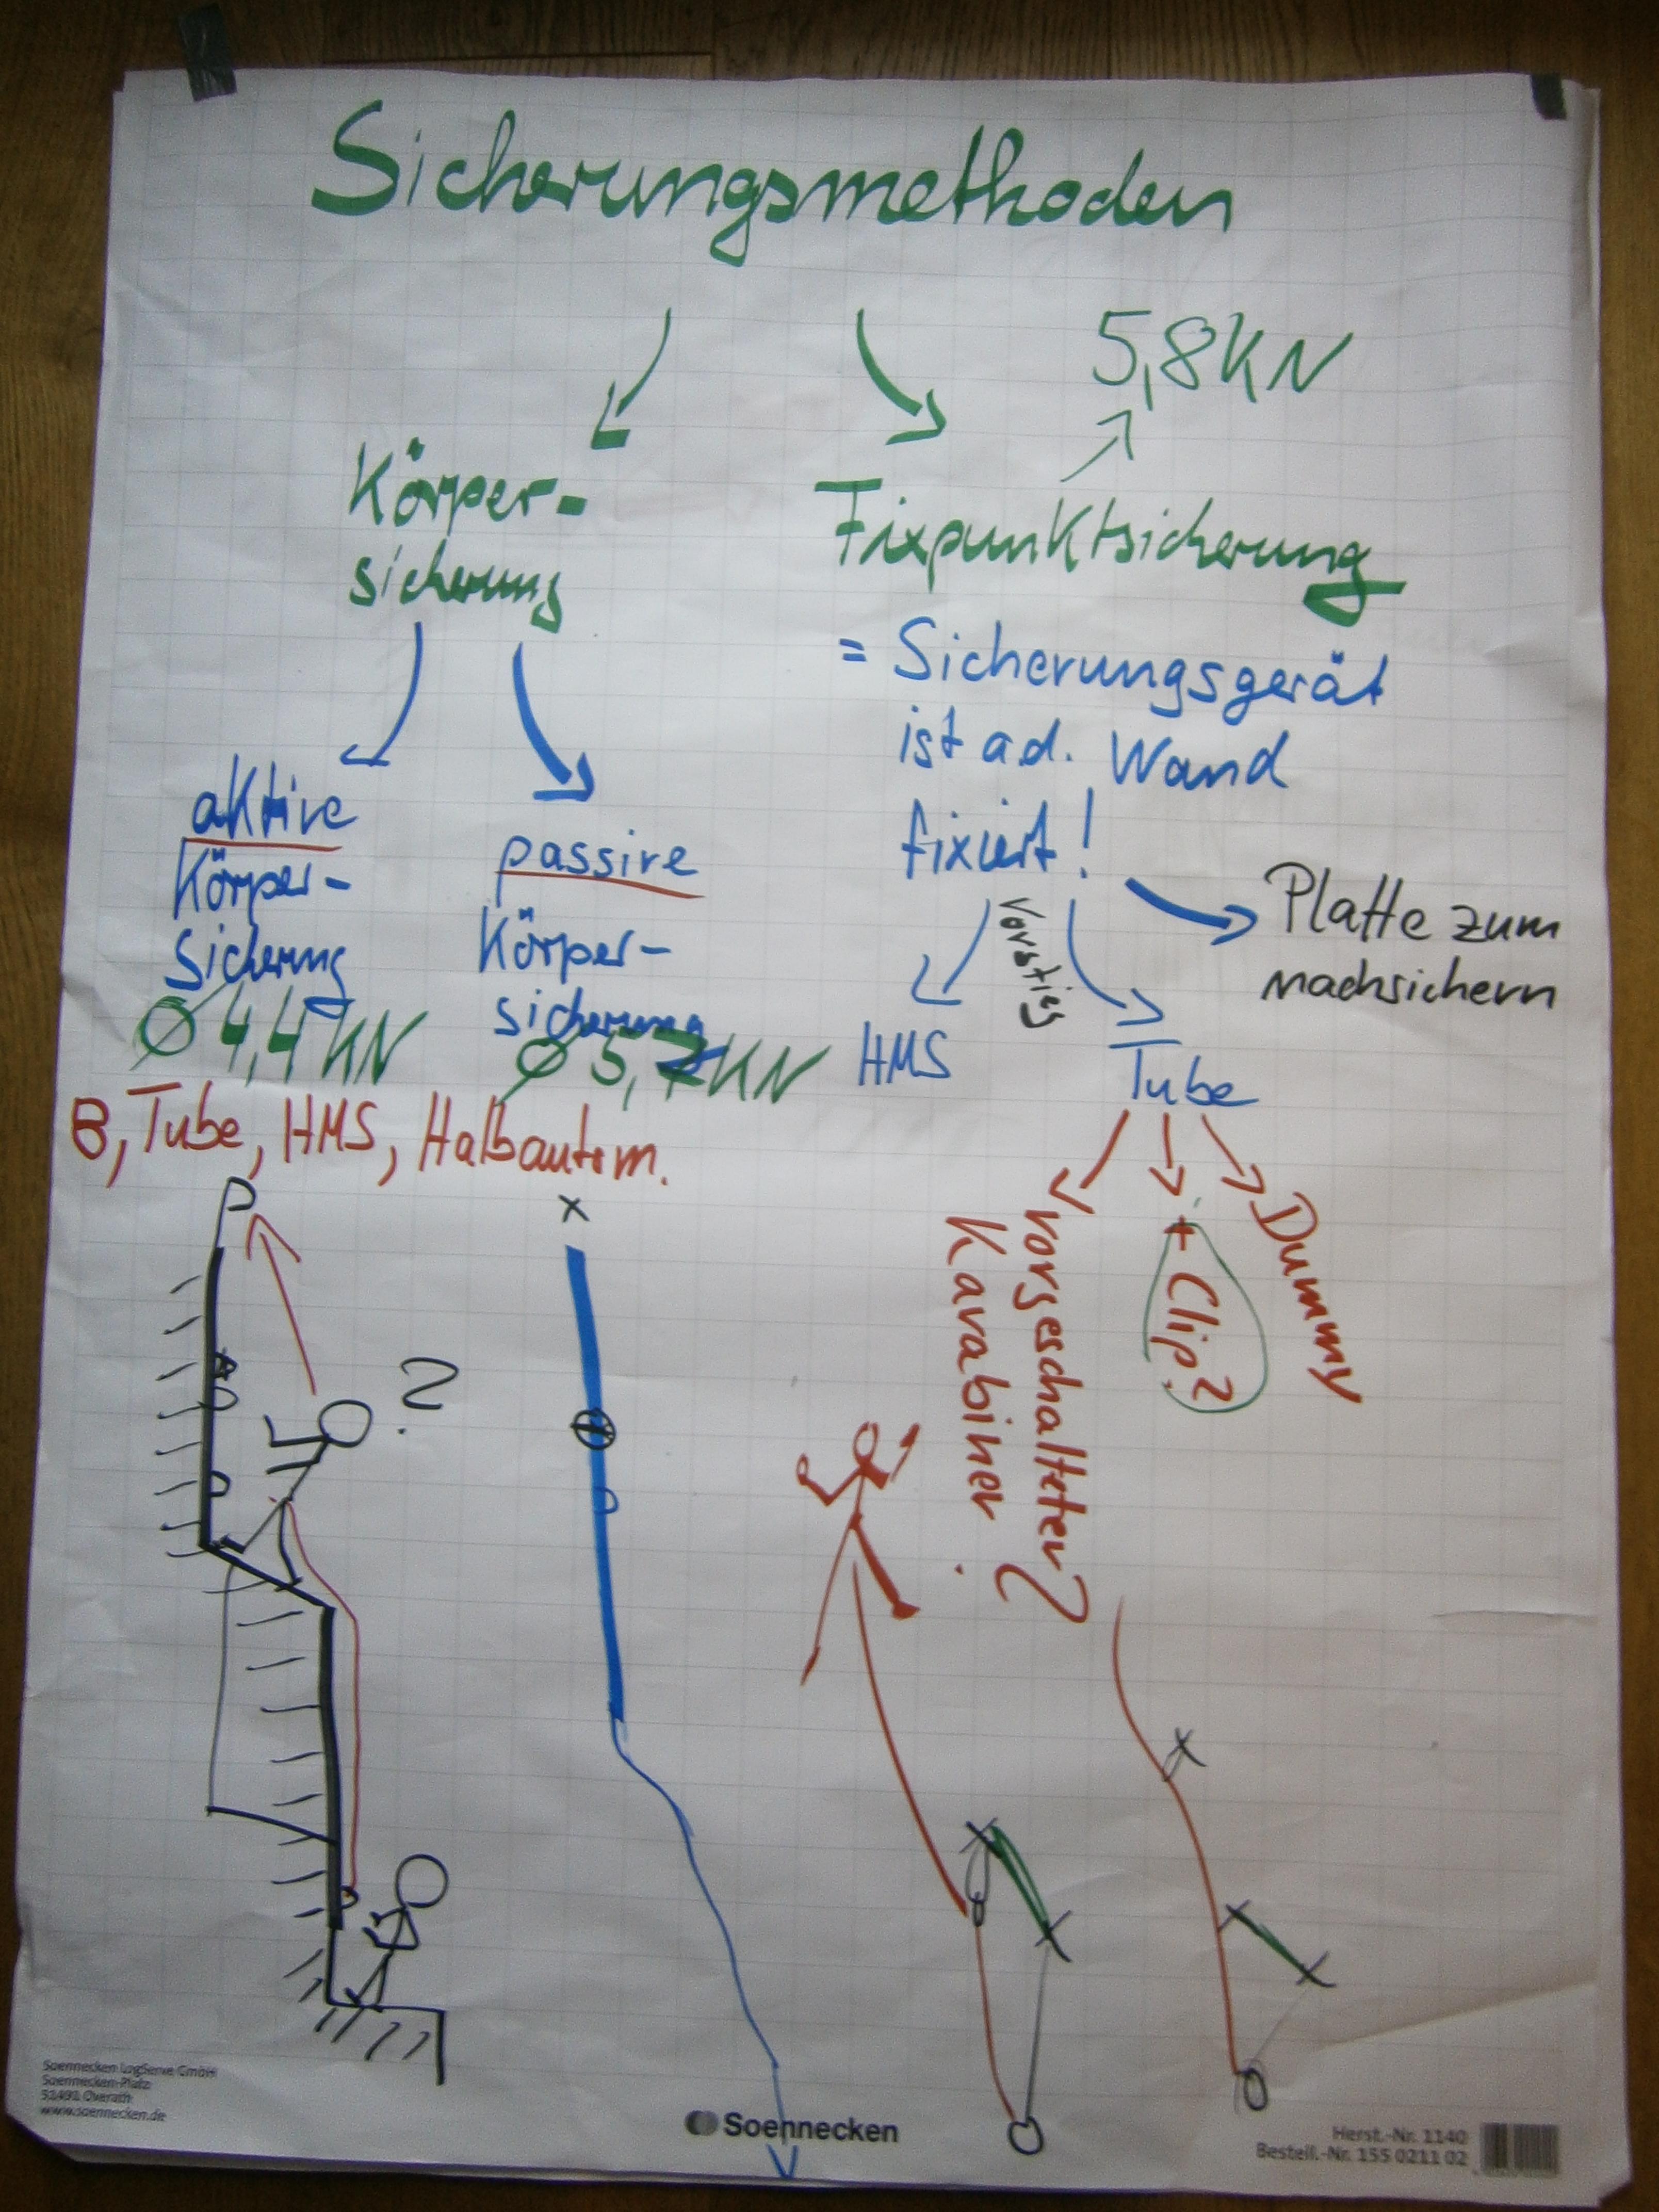 Sicherungsmethoden
5,8KN
Körper-
sicherung
Fixpunktsicherung
= Sicherungsgerät
ist a d. Wand
fixiert!
aktive
Körper-
sicherung
Ø 4,4 KN
passive
Körper-
sicherung
Ø 5,7 KN
Vorstieg
HMS
Tube
Platte zum
nachsichern
8, Tube, HMS, Halbautom.
vorgeschalteter
Karabiner?
+ Clip?
Dummy
?
Soennecken LogServe GmbH
Soennecken-Platz
51491 Overath
www.soennecken.de
Soennecken
Herst.-Nr. 1140
Bestell.-Nr. 155 0211 02